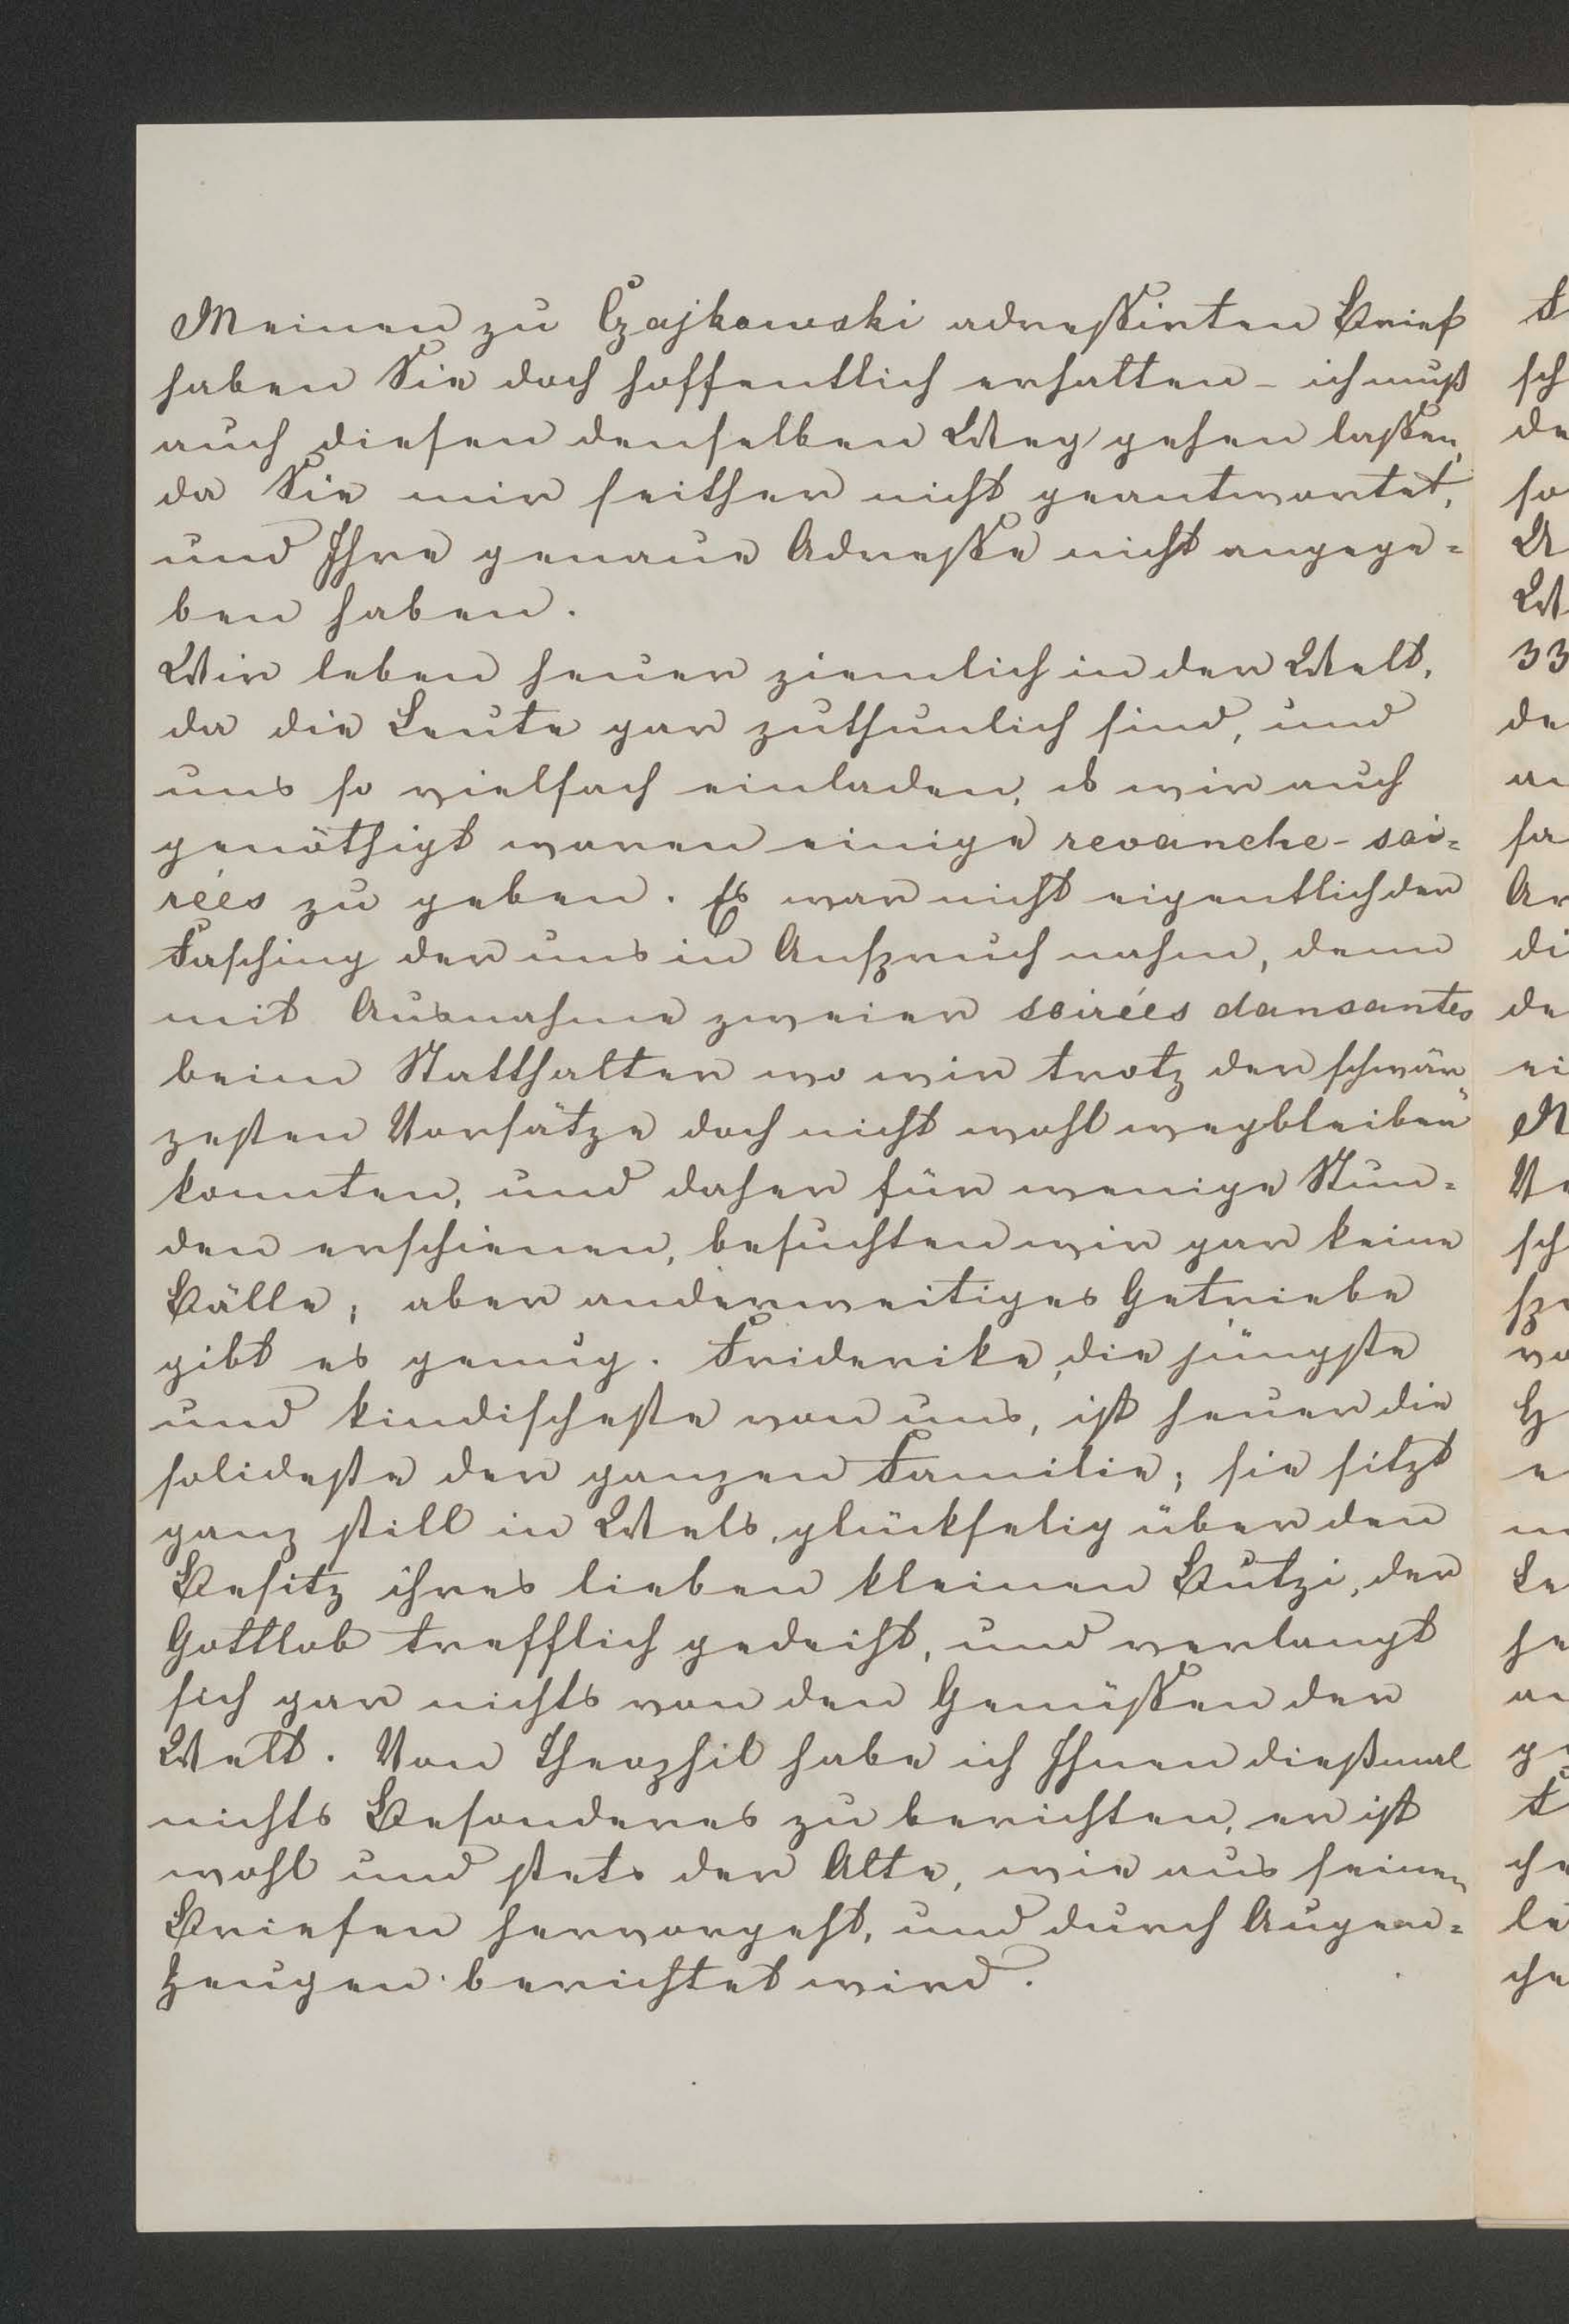 Meinen zu Czajkowski adressirten Brief
haben Sie doch hoffentlich erhalten – ich muß
auch diesen denselben Weg gehen lassen,
da Sie mir seither nicht geantwortet,
und Ihre genaue Adresse nicht angege=
ben haben.
Wir leben heuer ziemlich in der Welt,
da die Leute gar zuthunlich sind, und
uns so vielfach einladen, daß wir auch
genöthigt waren einige revanche-soi=
rées zu geben. Es war nicht eigentlich der
Fasching der uns in Anspruch nahm, denn
mit Ausnahme zweier soirées dansantes
beim Statthalter wo wir trotz der schwär=
zesten Vorsätze doch nicht wohl wegbleiben
konnten, und daher für wenige Stun=
den erschienen, besuchten wir gar keine
Bälle; aber anderweitiges Getriebe
gibt es genug. Friderike, die jüngste
und kindischeste von uns, ist heuer die
solideste der ganzen Familie; sie sitzt
ganz still in Wels, glückselig über den
Besitz ihres lieben kleinen Butzi, der
Gottlob trefflich gedeiht, und verlangt
sich gar nichts von den Genüssen der
Welt. Von Theophil habe ich Ihnen dießmal
nichts Besonderes zu berichten, er ist
wohl und stets der Alte, wie aus seinen
Briefen hervorgeht, und durch Augen=
zeugen berichtet wird.